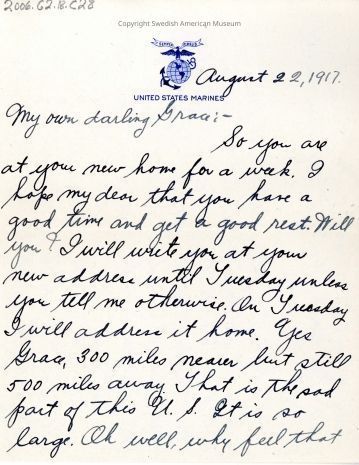 2006.62.18.C28
Copyright Swedish American Museum
UNITED STATES MARINES
August 22, 1917.
My own darling Grace:-
So you are
at your new home for a week. I
hope my dear that you have a
good time and get a good rest. Will
you? I will write you at your
new address until Tuesday unless
you tell me otherwise. On Tuesday
I will address it home. Yes
Grace, 300 miles nearer but still
500 miles away. That is the sad
part of this U. S. It is so
large. Oh well, why feel that